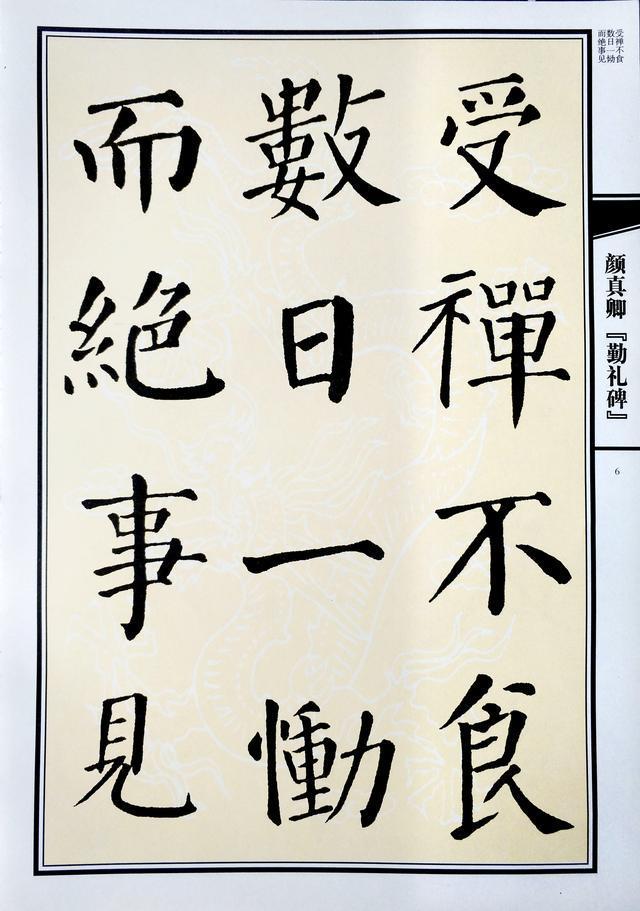 受禪不食
數日一慟
而絶事見
受禅不食
数日一恸
而绝事见
颜真卿『勤礼碑』
6